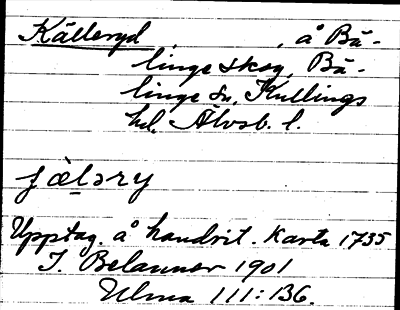 Källeryd, å Bä-
linge skog, Bä-
linge sn, Kullings
hd. Älvsb. l.
Upptag. å handrit. Karta 1735
J. Belanner 1901
Ulma 111:136.